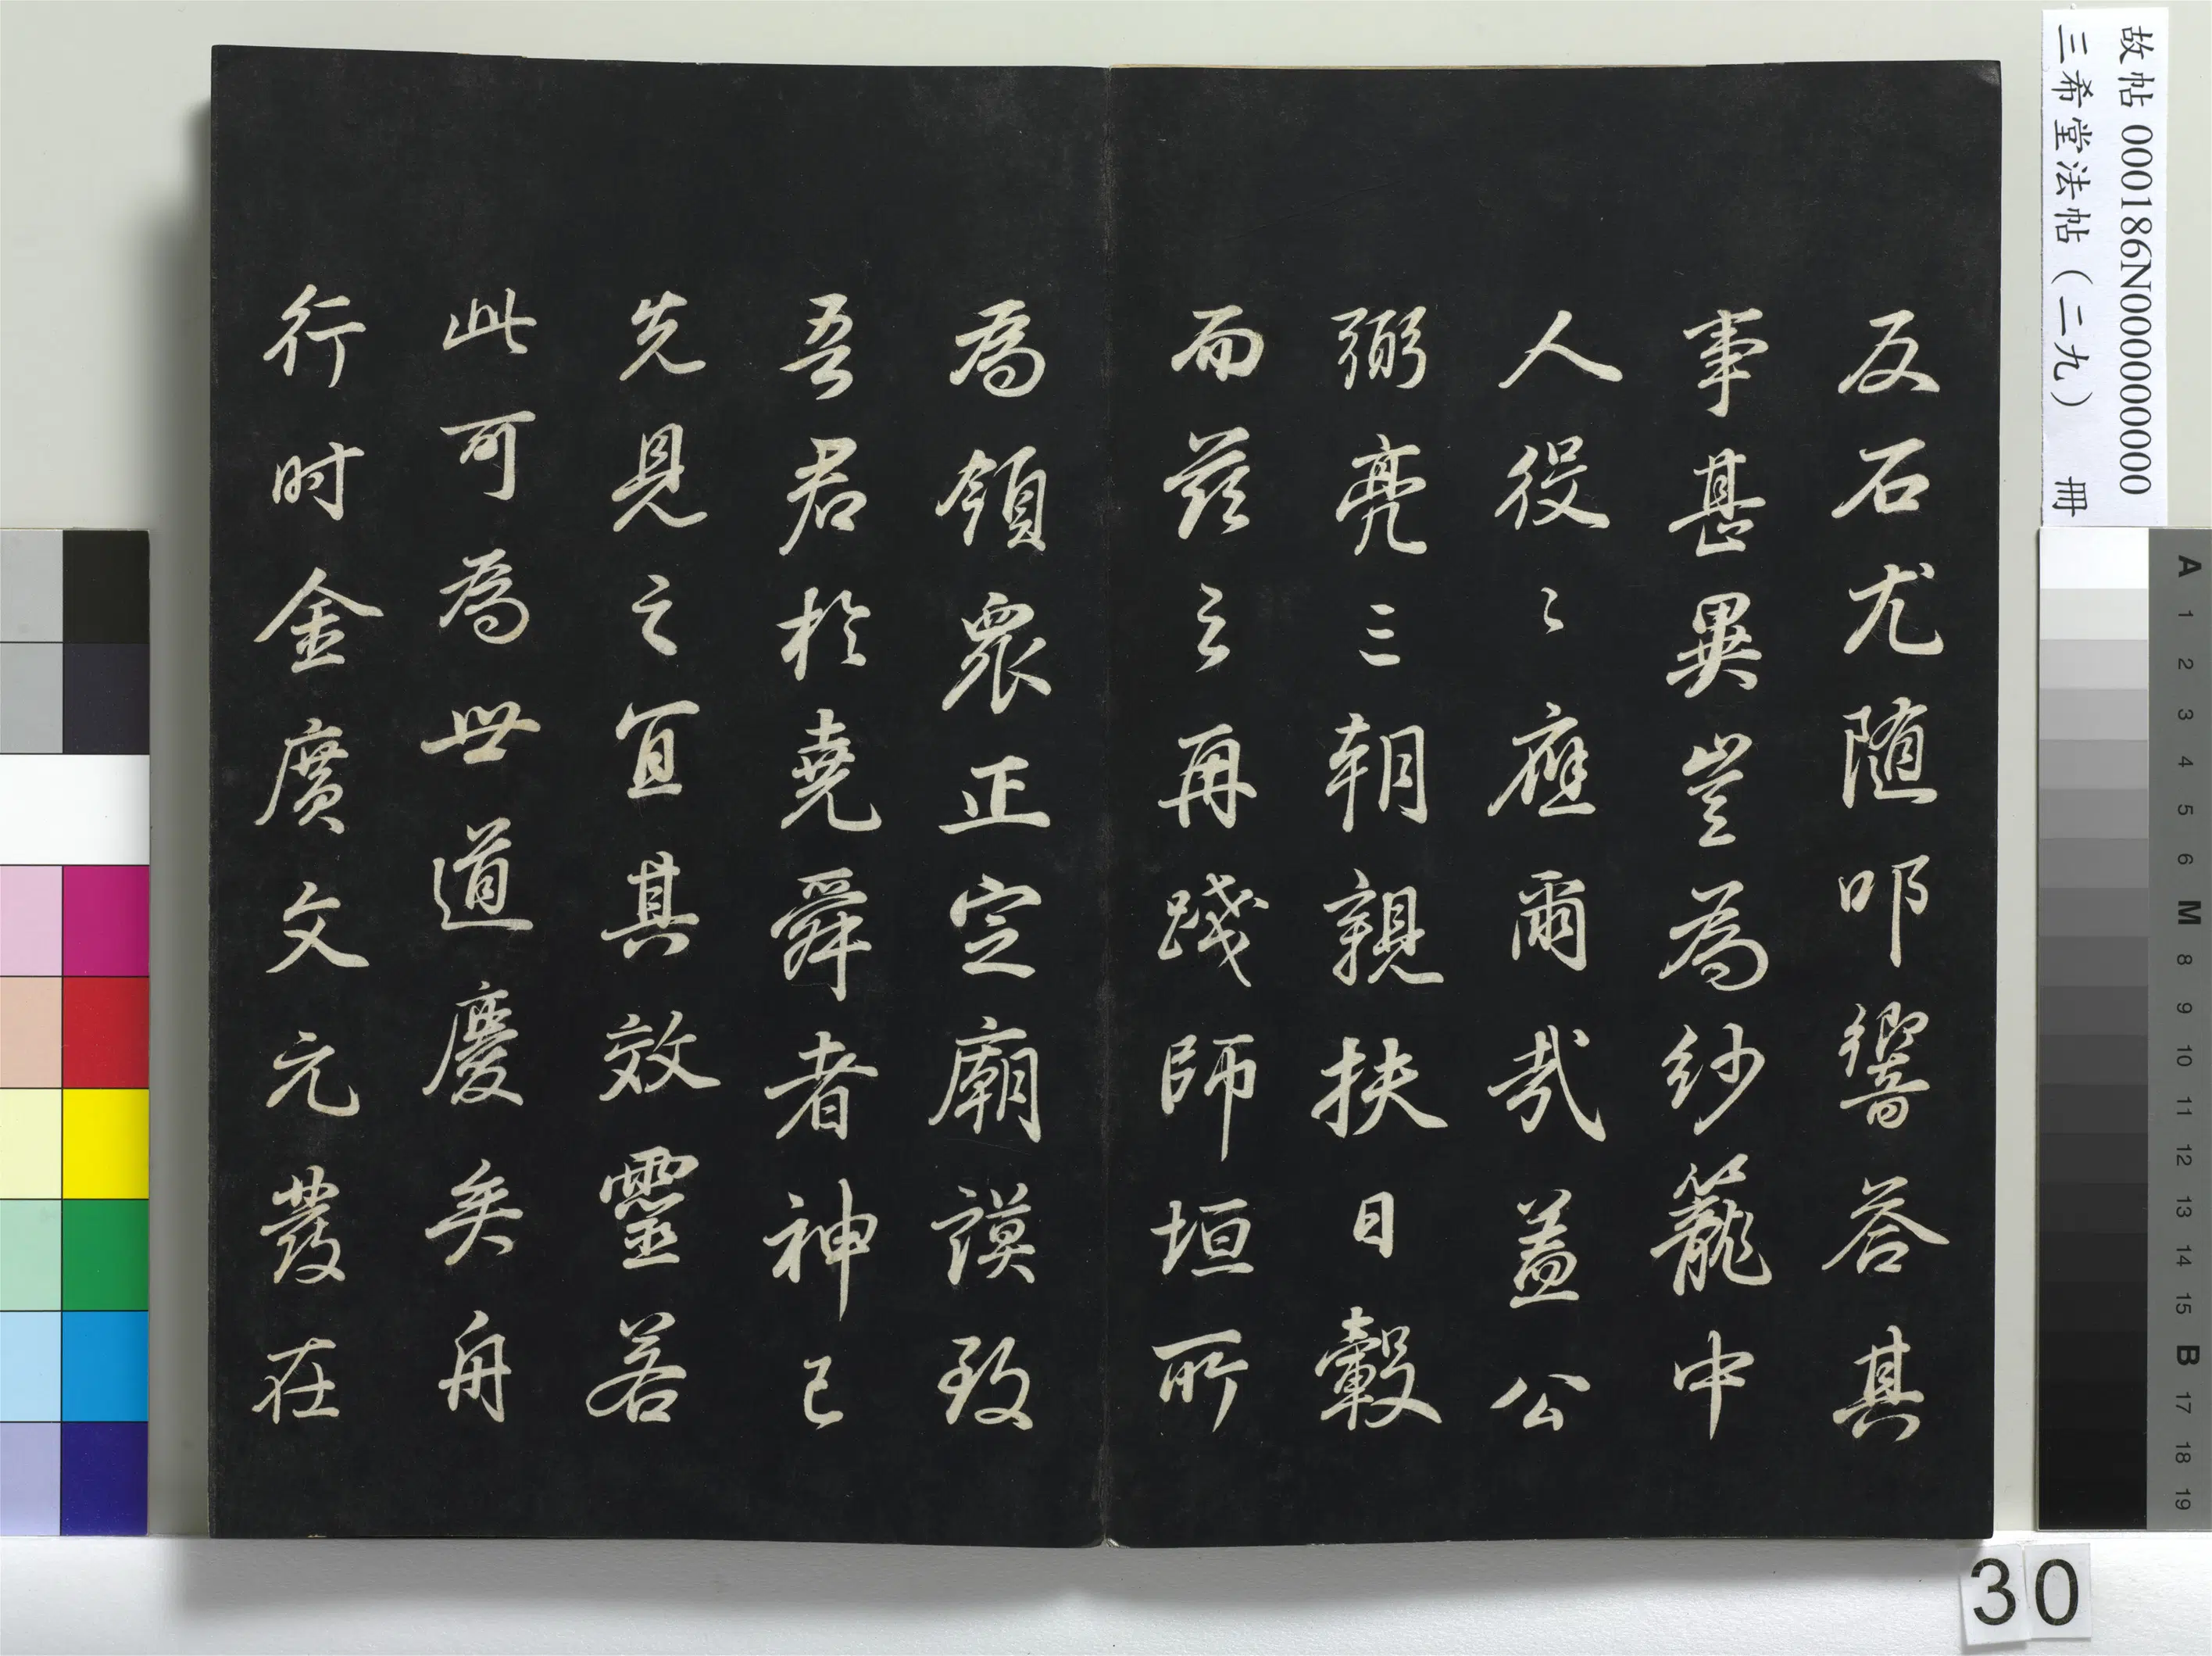 反石尤随叩響荅其
事甚異豈為紗籠中
人役〻應爾哉蓋公
弼亮三朝親扶日轂
而茲之再踐師垣所
為領眾正定廟謨致
吾君於堯舜者神已
先見之宜其效靈若
此可為世道慶矣舟
行时金廣文元發在
故帖 000186N000000000
三希堂法帖（二九） 冊
A 1 2 3 4 5 6 M 8 9 10 11 12 13 14 15 B 17 18 19
30